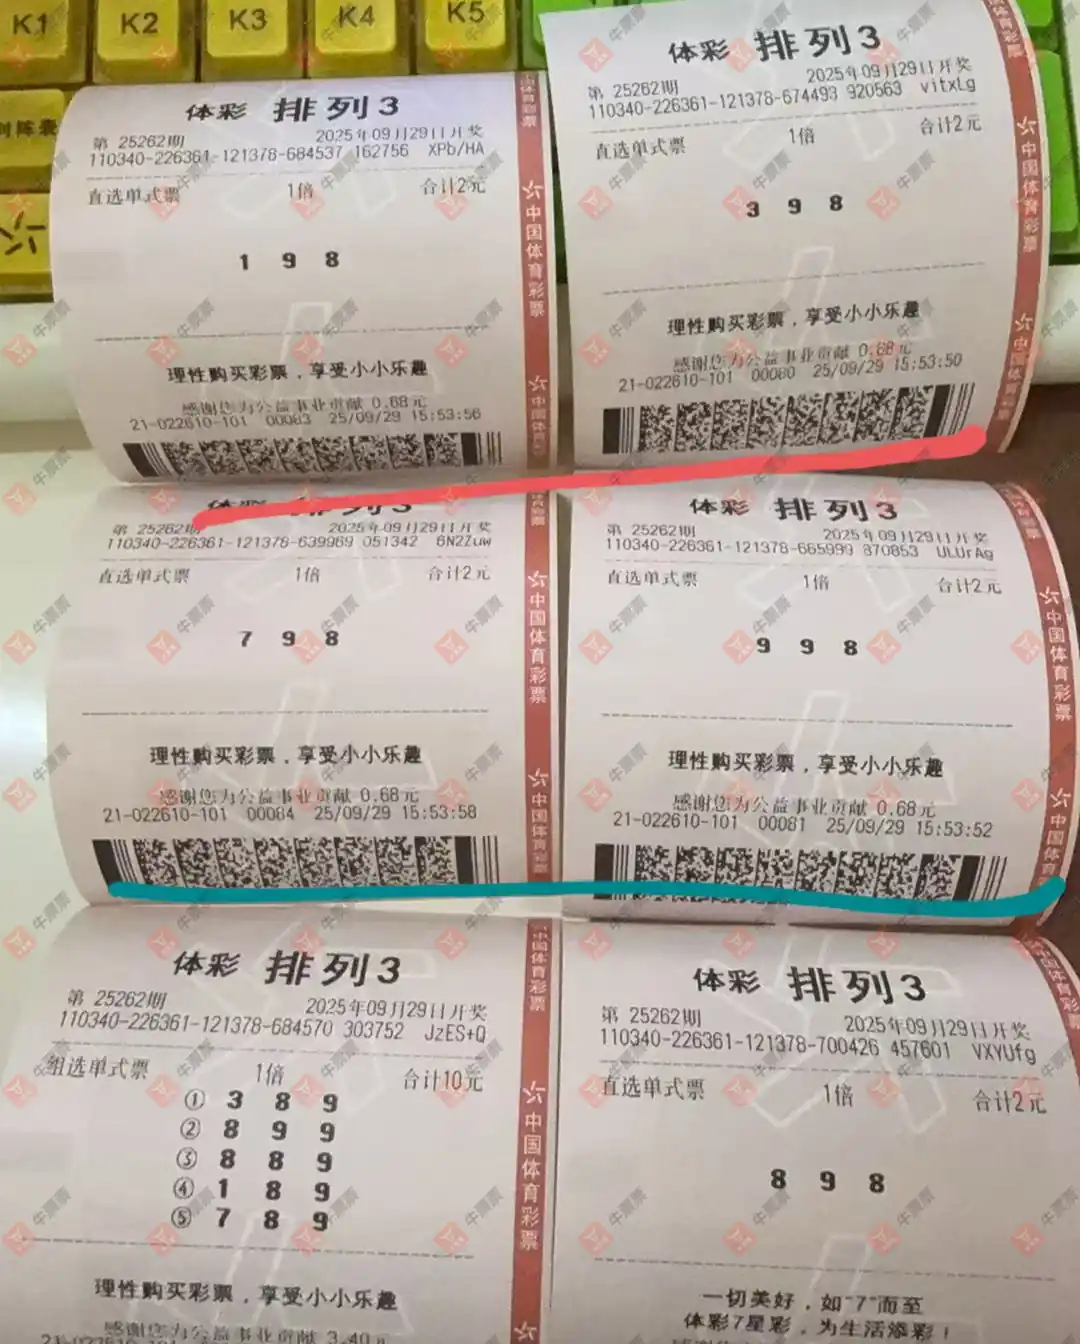 K1
K2
K3
K4
K5
体彩 排列3
第 25262期 2025年09月29日开奖
110340-226361-121378-684537 162756 XPb/HA
直选单式票 1倍 合计2元
1 9 8
理性购买彩票，享受小小乐趣
感谢您为公益事业贡献 0.68元
21-022610-101 00083 25/09/29 15:53:56
中国体育彩票
体彩 排列3
第 25262期 2025年09月29日开奖
110340-226361-121378-674493 920563 vitxLg
直选单式票 1倍 合计2元
3 9 8
理性购买彩票，享受小小乐趣
感谢您为公益事业贡献 0.68元
21-022610-101 00080 25/09/29 15:53:50
中国体育彩票
体彩 排列3
第 25262期 2025年09月29日开奖
110340-226361-121378-639969 051342 6N2Zuw
直选单式票 1倍 合计2元
7 9 8
理性购买彩票，享受小小乐趣
感谢您为公益事业贡献 0.68元
21-022610-101 00084 25/09/29 15:53:58
中国体育彩票
体彩 排列3
第 25262期 2025年09月29日开奖
110340-226361-121378-665999 870853 ULUrAg
直选单式票 1倍 合计2元
9 9 8
理性购买彩票，享受小小乐趣
感谢您为公益事业贡献 0.68元
21-022610-101 00081 25/09/29 15:53:52
中国体育彩票
体彩 排列3
第 25262期 2025年09月29日开奖
110340-226361-121378-684570 303752 JzES+Q
组选单式票 1倍 合计10元
① 3 8 9
② 8 9 9
③ 8 8 9
④ 1 8 9
⑤ 7 8 9
理性购买彩票，享受小小乐趣
感谢您为公益事业贡献 3.40元
中国体育彩票
体彩 排列3
第 25262期 2025年09月29日开奖
110340-226361-121378-700426 457601 VXYUfg
直选单式票 1倍 合计2元
8 9 8
一切美好，如"7"而至
体彩7星彩，为生活添彩！
中国体育彩票
牛票票